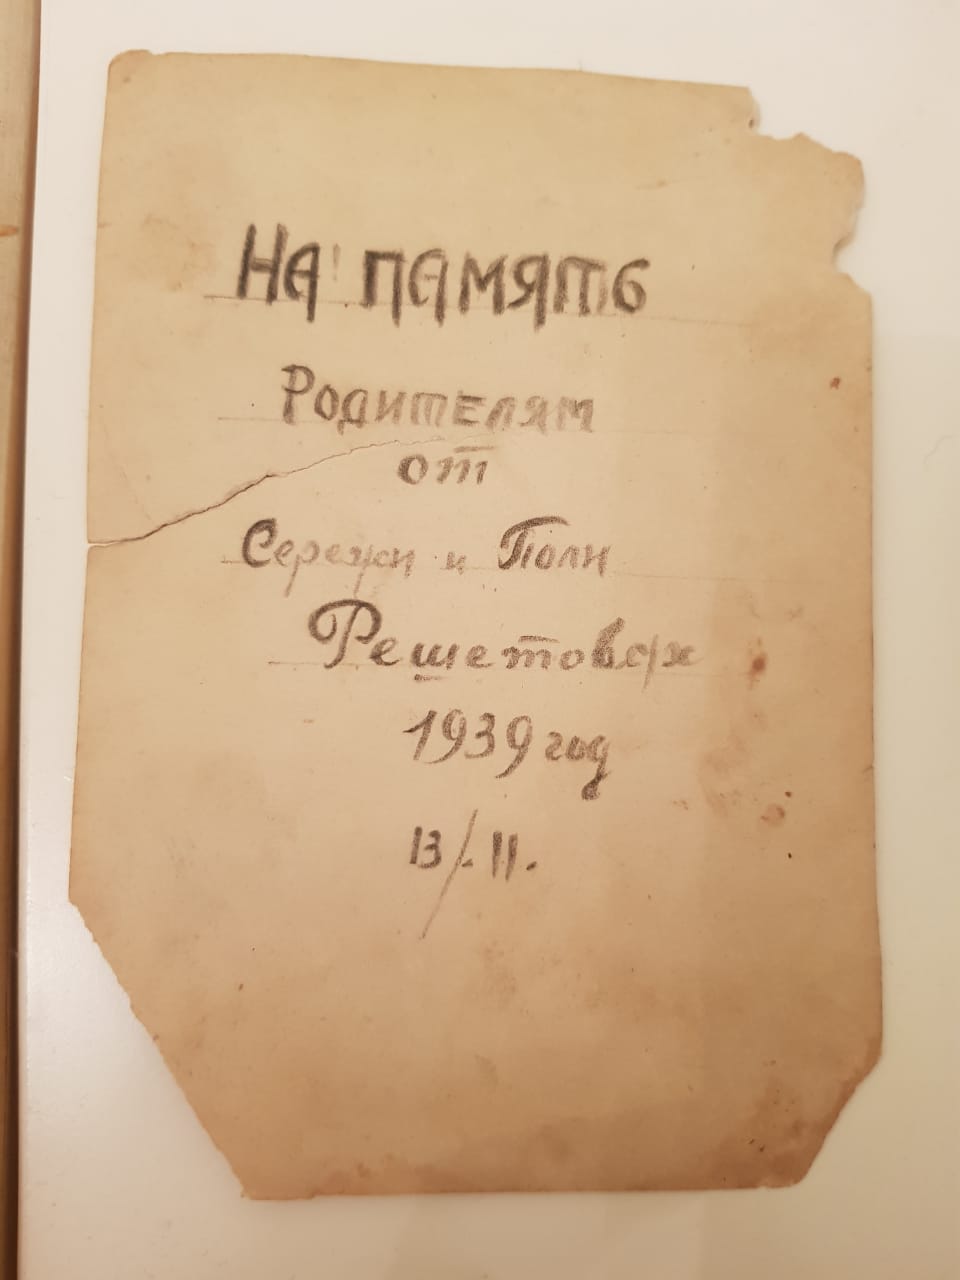 На память
Родителям
от
Сережи и Поли
Решетовых
1939 год
13/-11.